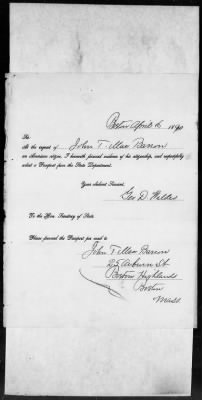 Boston April 6 1890
Sir
At the request of John T. MacBarron
an American citizen, I herewith forward evidence of his citizenship, and respectfully
solicit a Passport from the State Department.
Your obedient Servant,
Geo D. Welles
To the Hon. Secretary of State.
Please forward the Passport per mail to
John T MacBarron
25 Auburn St
Boston Highlands
Boston
Mass.